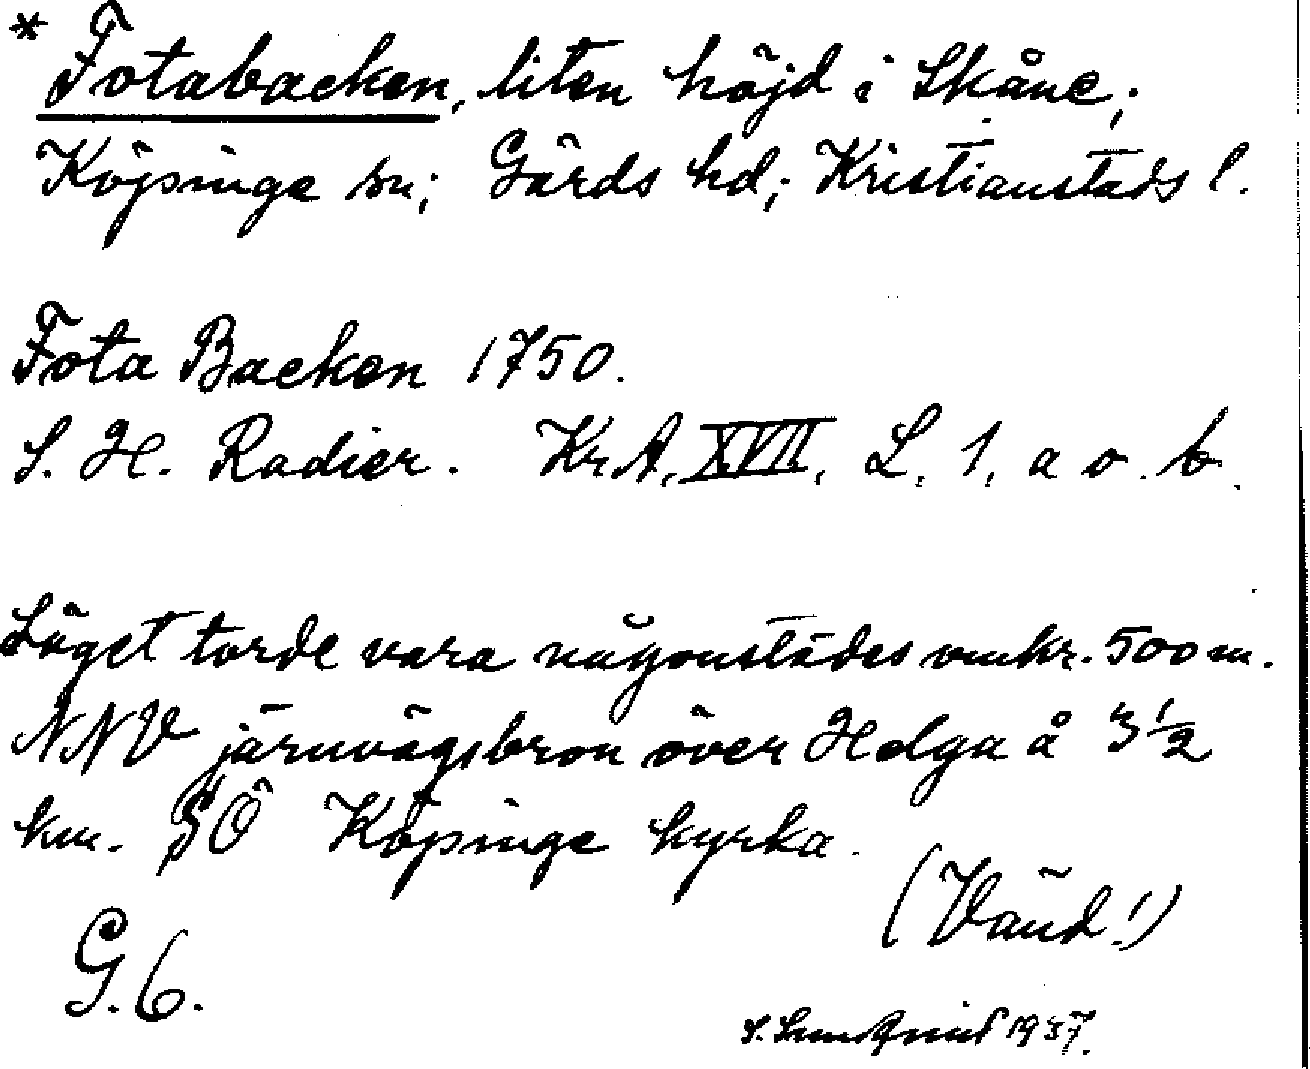 * Fotabacken, liten höjd i Skåne;
Köpinge sn; Gärds hd; Kristianstads l.
Fota Backen 1750.
S. H. Radier. Kr.A, XVII, L, 1, a o. b.
Läget torde vara någonstädes omkr. 500 m.
NNV järnvägsbron över Helga å 3 1/2
km. SÖ Köpinge kyrka.
(Vänd!)
G. 6.
1937.